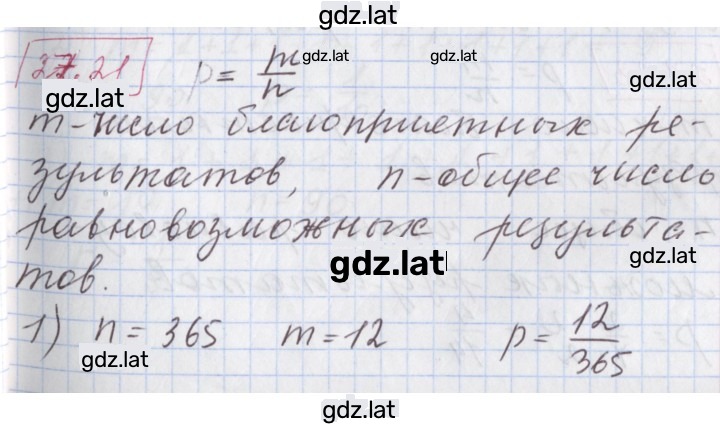 gdz.lat
27.21 p = m/n gdz.lat gdz.lat
gdz.lat gdz.lat
m-число благоприятных ре-
зультатов, n-общее число
равновозможных результа-
gdz.lat gdz.lat
тов.
1) n = 365 m = 12 p = 12/365
gdz.lat gdz.lat
gdz.lat